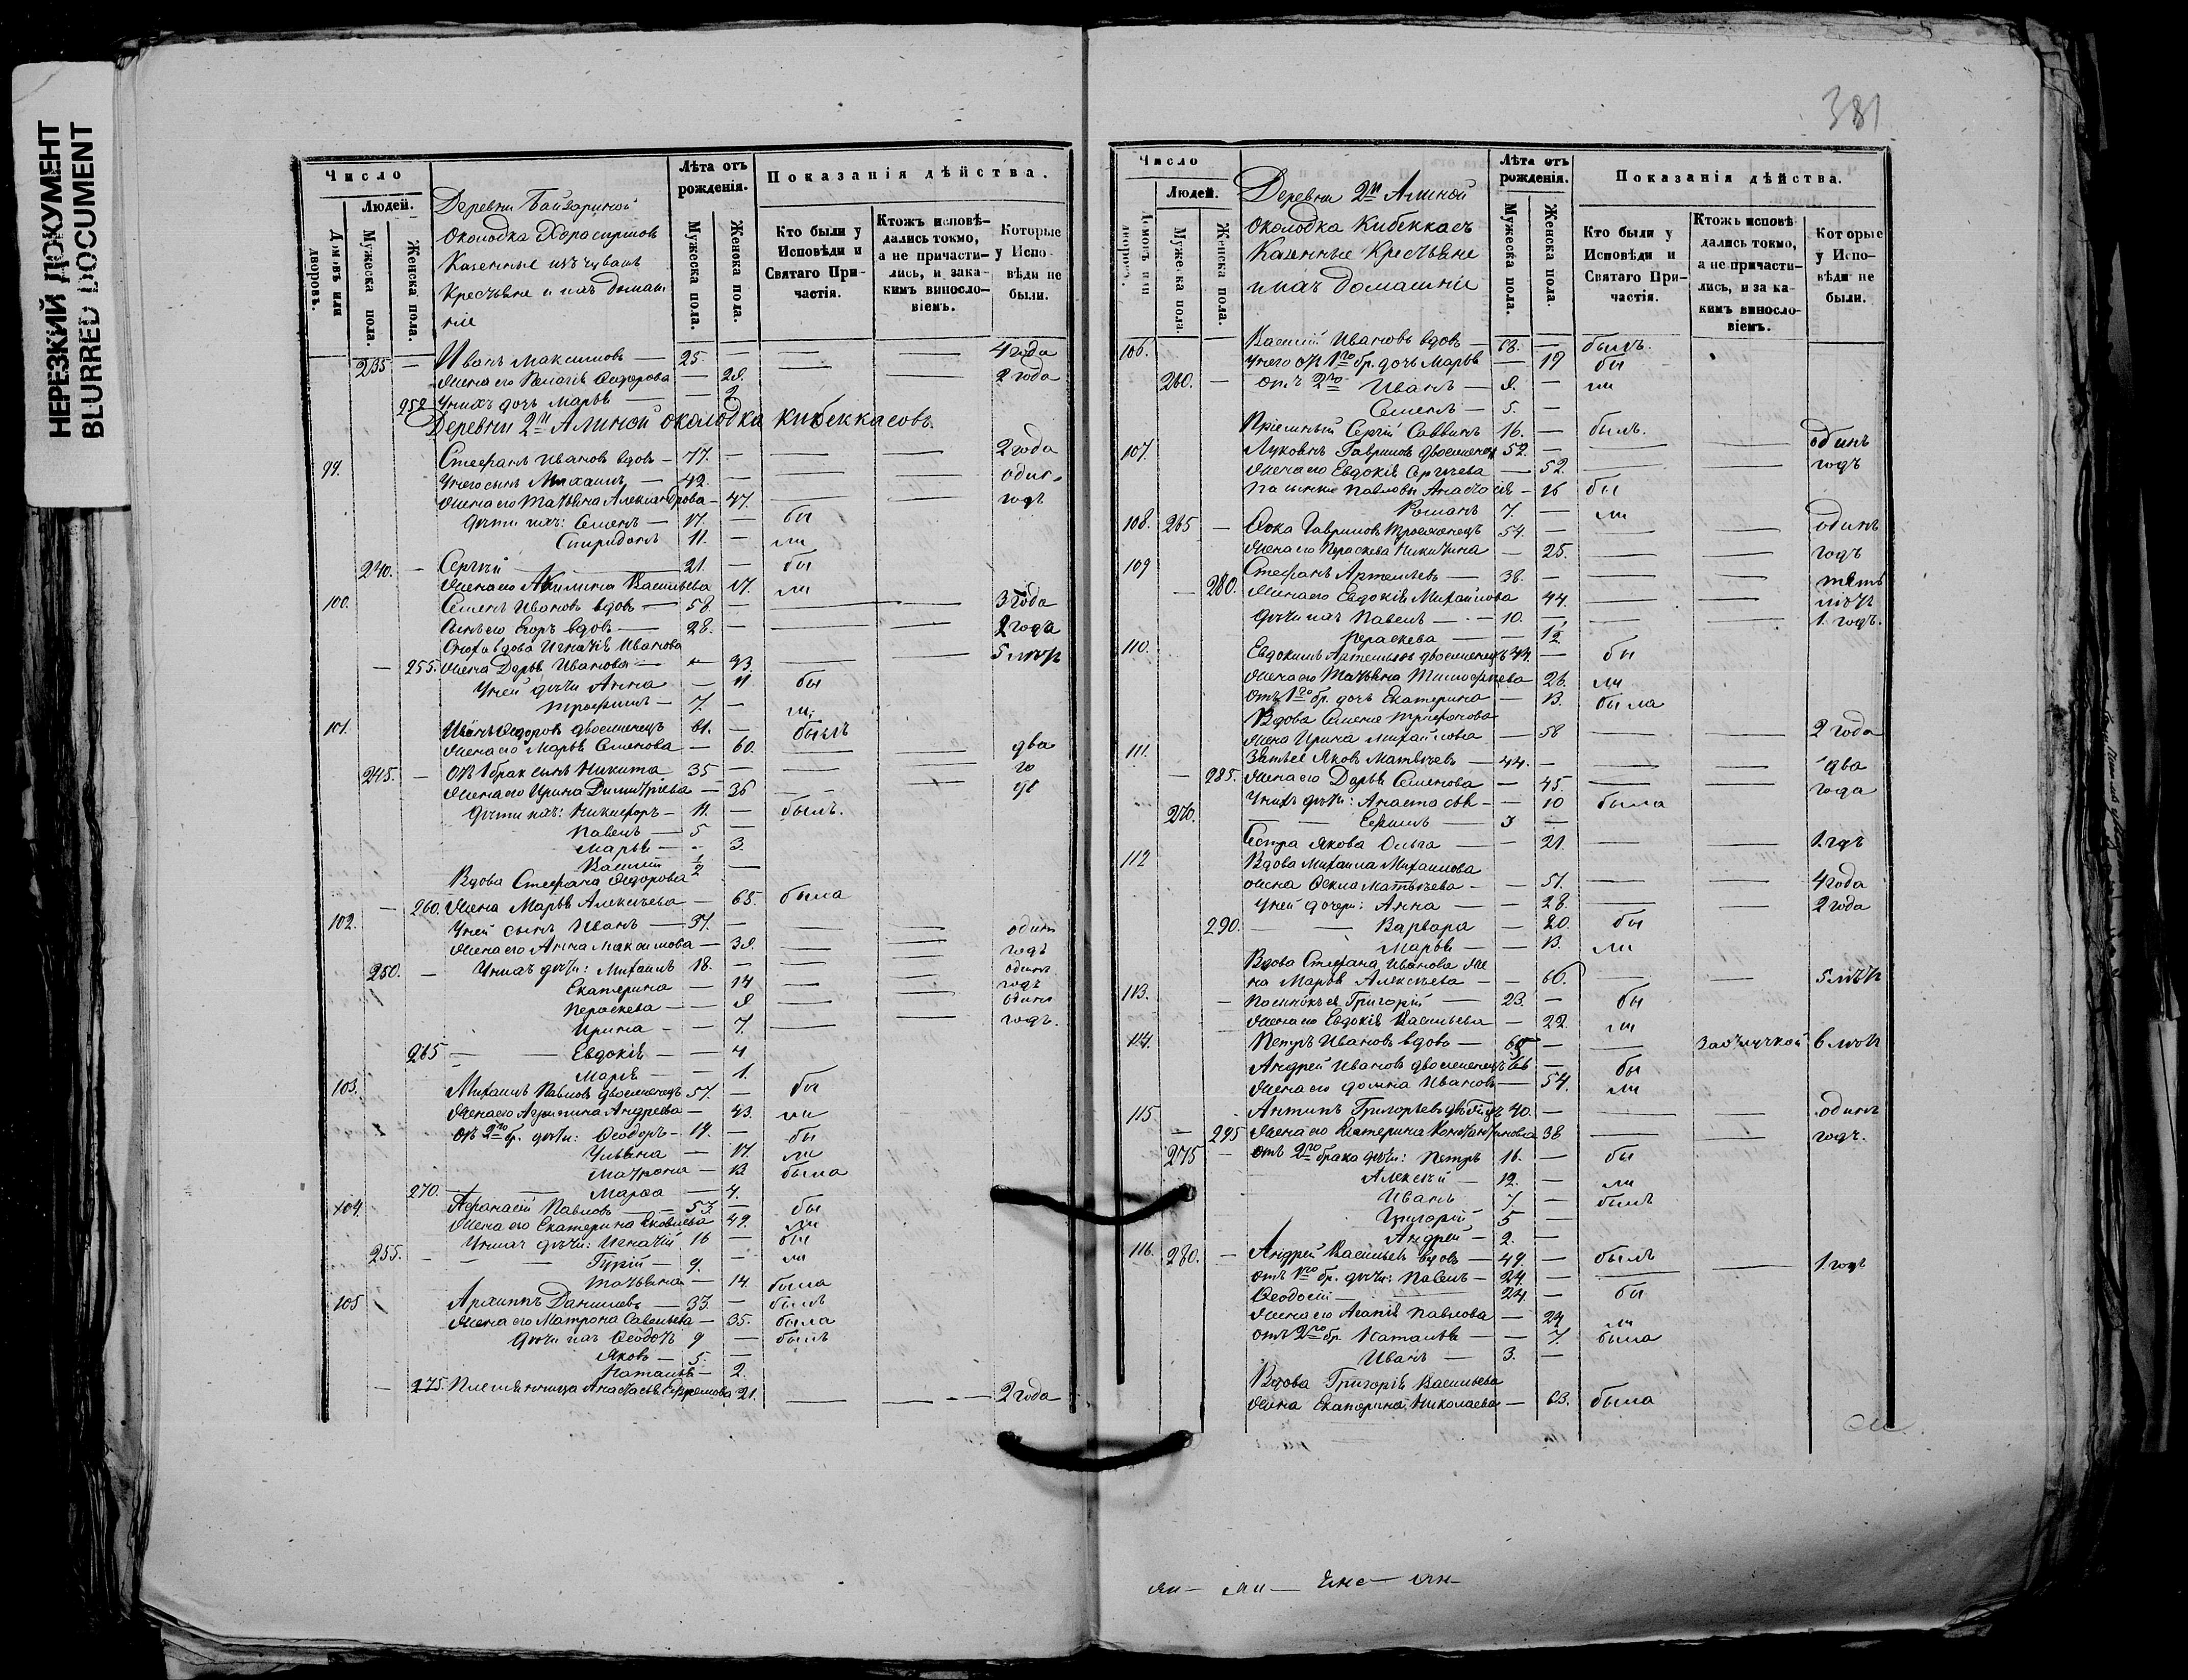 НЕРЕЗКИЙ ДОКУМЕНТ
BLURRED DOCUMENT
Число
Людей.
Домовъ или дворовъ.
Мужеска пола.
Женска пола.
Деревни Байзариной
Околодка
Казенные изъ чувашъ
Крестьяне и ихъ домаш
ніе
Лѣта отъ рожденія.
Мужеска пола.
Женска пола.
Показанія дѣйства.
Кто были у Исповѣди и Святаго Причастія.
Ктожъ исповѣдались токмо, а не причастились, и за какимъ винословіемъ.
Которые у Исповѣди не были.
235 — Иванъ Максимовъ — 25. — — — 4 года
Жена его Пелагія Ѳедорова — 28. — — 2 года
252 У нихъ дочь Марья — — 2
Деревни 2й Алиной околодка Кибеккасовъ.
99. Стефанъ Ивановъ вдовъ — 77. — — — 2 года
У него сынъ Михаилъ — 42. — — — одинъ
Жена его Татьяна Александрова — 47. — — годъ
Дѣти ихъ: Семенъ — 17. — бы
Спиридонъ 11. — ли
240. — Сергѣй — 21. — бы
Жена его Акилина Васильева 17. ли
100. Семенъ Ивановъ вдовъ — 58. — — — 3 года
Сынъ его Егоръ вдовъ — 28. — — — 2 года
вдова Игнатія Иванова
— 255. Жена Дарья Иванова — 43. — — 5 лѣтъ
У ней дѣти Анна — 11 бы
Трофимъ — 7. — ли
101. Иванъ Ѳедоровъ двоеженецъ 61. — былъ
Жена его Марья Семенова — 60. — — два
245. — Отъ 1 брак сынъ Никита 35 — — — го
Жена его Ирина Димитріева — 36 — —
Дѣти ихъ: Никифоръ — 11. — былъ.
Павелъ — 5 —
Марья — — 3.
Василій 1/2 —
Вдова Стефана Ѳедорова
— 260. Жена Марья Алексѣева — 65. была
102. У ней сынъ Иванъ — 37. — — — одинъ
Жена его Анна Максимова — 38. — — годъ
250. — У нихъ дѣти: Михаилъ 18. — — — одинъ
Екатерина — 14 — — годъ
Пераскева — 8 — — одинъ
Ирина — — 7. — — годъ.
265 — — Евдокія — — 4
Марья — — 1.
103. Михаилъ Павловъ двоеженецъ 57. — бы
Жена его Агрипина Андреева — 43. ли
Отъ 2го бр. дѣти: Ѳеодоръ — 19. — бы
Ульяна — 17. ли
Матрона — 13 была
270. — Марѳа — 4.
104. Афанасій Павловъ — 53. — бы
Жена его Екатерина Яковлева 49. ли
У нихъ дѣти: Игнатій 16 — бы
255. — — Гурій — 9. — ли
Татьяна — 14 была
105 Архиппъ Даниловъ — 33. — былъ
Жена его Матрона Савельева — 35. была
Дѣти ихъ Ѳеодотъ 9 — былъ
Яковъ — 5. —
Наталья — 2.
— 275. Племянница Анастасья Ефремова 21. — — 2 года
381
Число
Людей.
Домовъ или дворовъ.
Мужеска пола.
Женска пола.
Деревни 2й Алиной
околодка Кибеккасъ
Казенные Крестьяне
и ихъ домашніе
Лѣта отъ рожденія.
Мужеска пола.
Женска пола.
Показанія дѣйства.
Кто были у Исповѣди и Святаго Причастія.
Ктожъ исповѣдались токмо, а не причастились, и за какимъ винословіемъ.
Которые у Исповѣди не были.
106. Василій Ивановъ вдовъ — 63. — былъ.
У него отъ 1го бр. дочь Марья — 19 бы
260. — отъ 2го Иванъ — 8. — ли
Семенъ — 5. —
Пріемный Сергѣй Саввинъ 16. — былъ.
107. Гавриловъ двоеженецъ 52. — — — одинъ
Жена его Евдокія Сергѣева — 52. — — годъ
Павловы Анастасія — 16 бы
Романъ 7. — ли
108. 265 — Гавриловъ троеженецъ 54. — — — одинъ
Жена его Праскева Никитина — 25. — — годъ
109 Стефанъ Артемьевъ — 38. — — —
— 280. Жена его Евдокія Михайлова 44. — — лѣтъ
Дѣти ихъ Павелъ — 10. — — — 1 годъ.
Пераскева — — 12
110. Евдокимъ Артемьевъ двоеженецъ 44. — бы
Жена его Татьяна Тимофѣева 26. ли
Отъ 1го бр. дочь Екатерина — 13. была
Вдова Семена Трифонова
Жена Ирина Михайлова — 58 — — 2 года
111. Зять ея Яковъ Матвѣевъ — 44. — — — два
— 285. Жена его Дарья Семенова — 45. — — года
У нихъ дѣти: Анастасья — — 10 была
270. — — Ефимъ — 3 —
Сестра Якова Ольга — — 21. — — 1 годъ
112 Вдова Михаила Михайлова
жена Матвѣева — — 51. — — 4 года
У ней дочери: Анна — — 28. — — 2 года
290. — — Варвара — 20. бы
Марья — — 13. ли
Вдова Стефана Иванова же
на Марья Алексѣева — — 66. — — 5 лѣтъ
113. — Григорій — 23. — бы
Жена его Евдокія Васильева — 22. ли
114. Петръ Ивановъ вдовъ — 65 — — 6 лѣтъ
Андрей Ивановъ двоеженецъ 66 — бы
Жена его Домна Иванова — 54. ли
115. Антипъ Григорьевъ 40. — — — одинъ
— 295 Жена его Екатерина Константинова 38 — — годъ.
275 — отъ 2го брака дѣти: Петръ 16. — бы
Алексѣй — 12. — ли
Иванъ 7 — былъ
Григорій 5 —
Андрей — 2. —
116. 280. — Андрей Васильевъ вдовъ — 49. — былъ
отъ 1го бр. дѣти: Павелъ — 24. — — — 1 годъ
Ѳеодосій — 24. — бы
Жена его Агапія Павлова — 24 ли
отъ 2го бр. Наталья — — 7. была
Иванъ — 3. —
Вдова Григорія Васильева
Жена Екатерина Николаева — 63. была